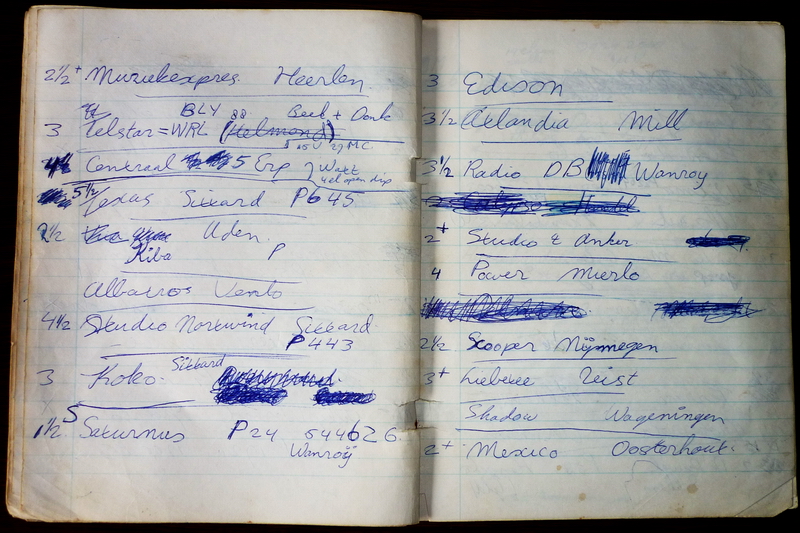 2½+ Muziekexpres Heerlen
BLY 88 Beek + Donk
3 Telstar = WRL (Helmond)
27 MC
Centraal 5 Erp 7 Watt
4el open dip
5½ Texas Sittard P645
2½ Uden
Kiba P
Albatros Venlo
4½ Studio Norkwind Sittard
P443
3 Koko Sittard
1½ 5 Saturnus P24 544626
Wanroÿ
3 Edison
3½ Mill
3½ Radio DB Wanroy
2+ Studio & Anker
4 Power Mierlo
2½ Scooper Nÿmegen
3+ Zeist
Shadow Wageningen
2+ Mexico Oosterhout.